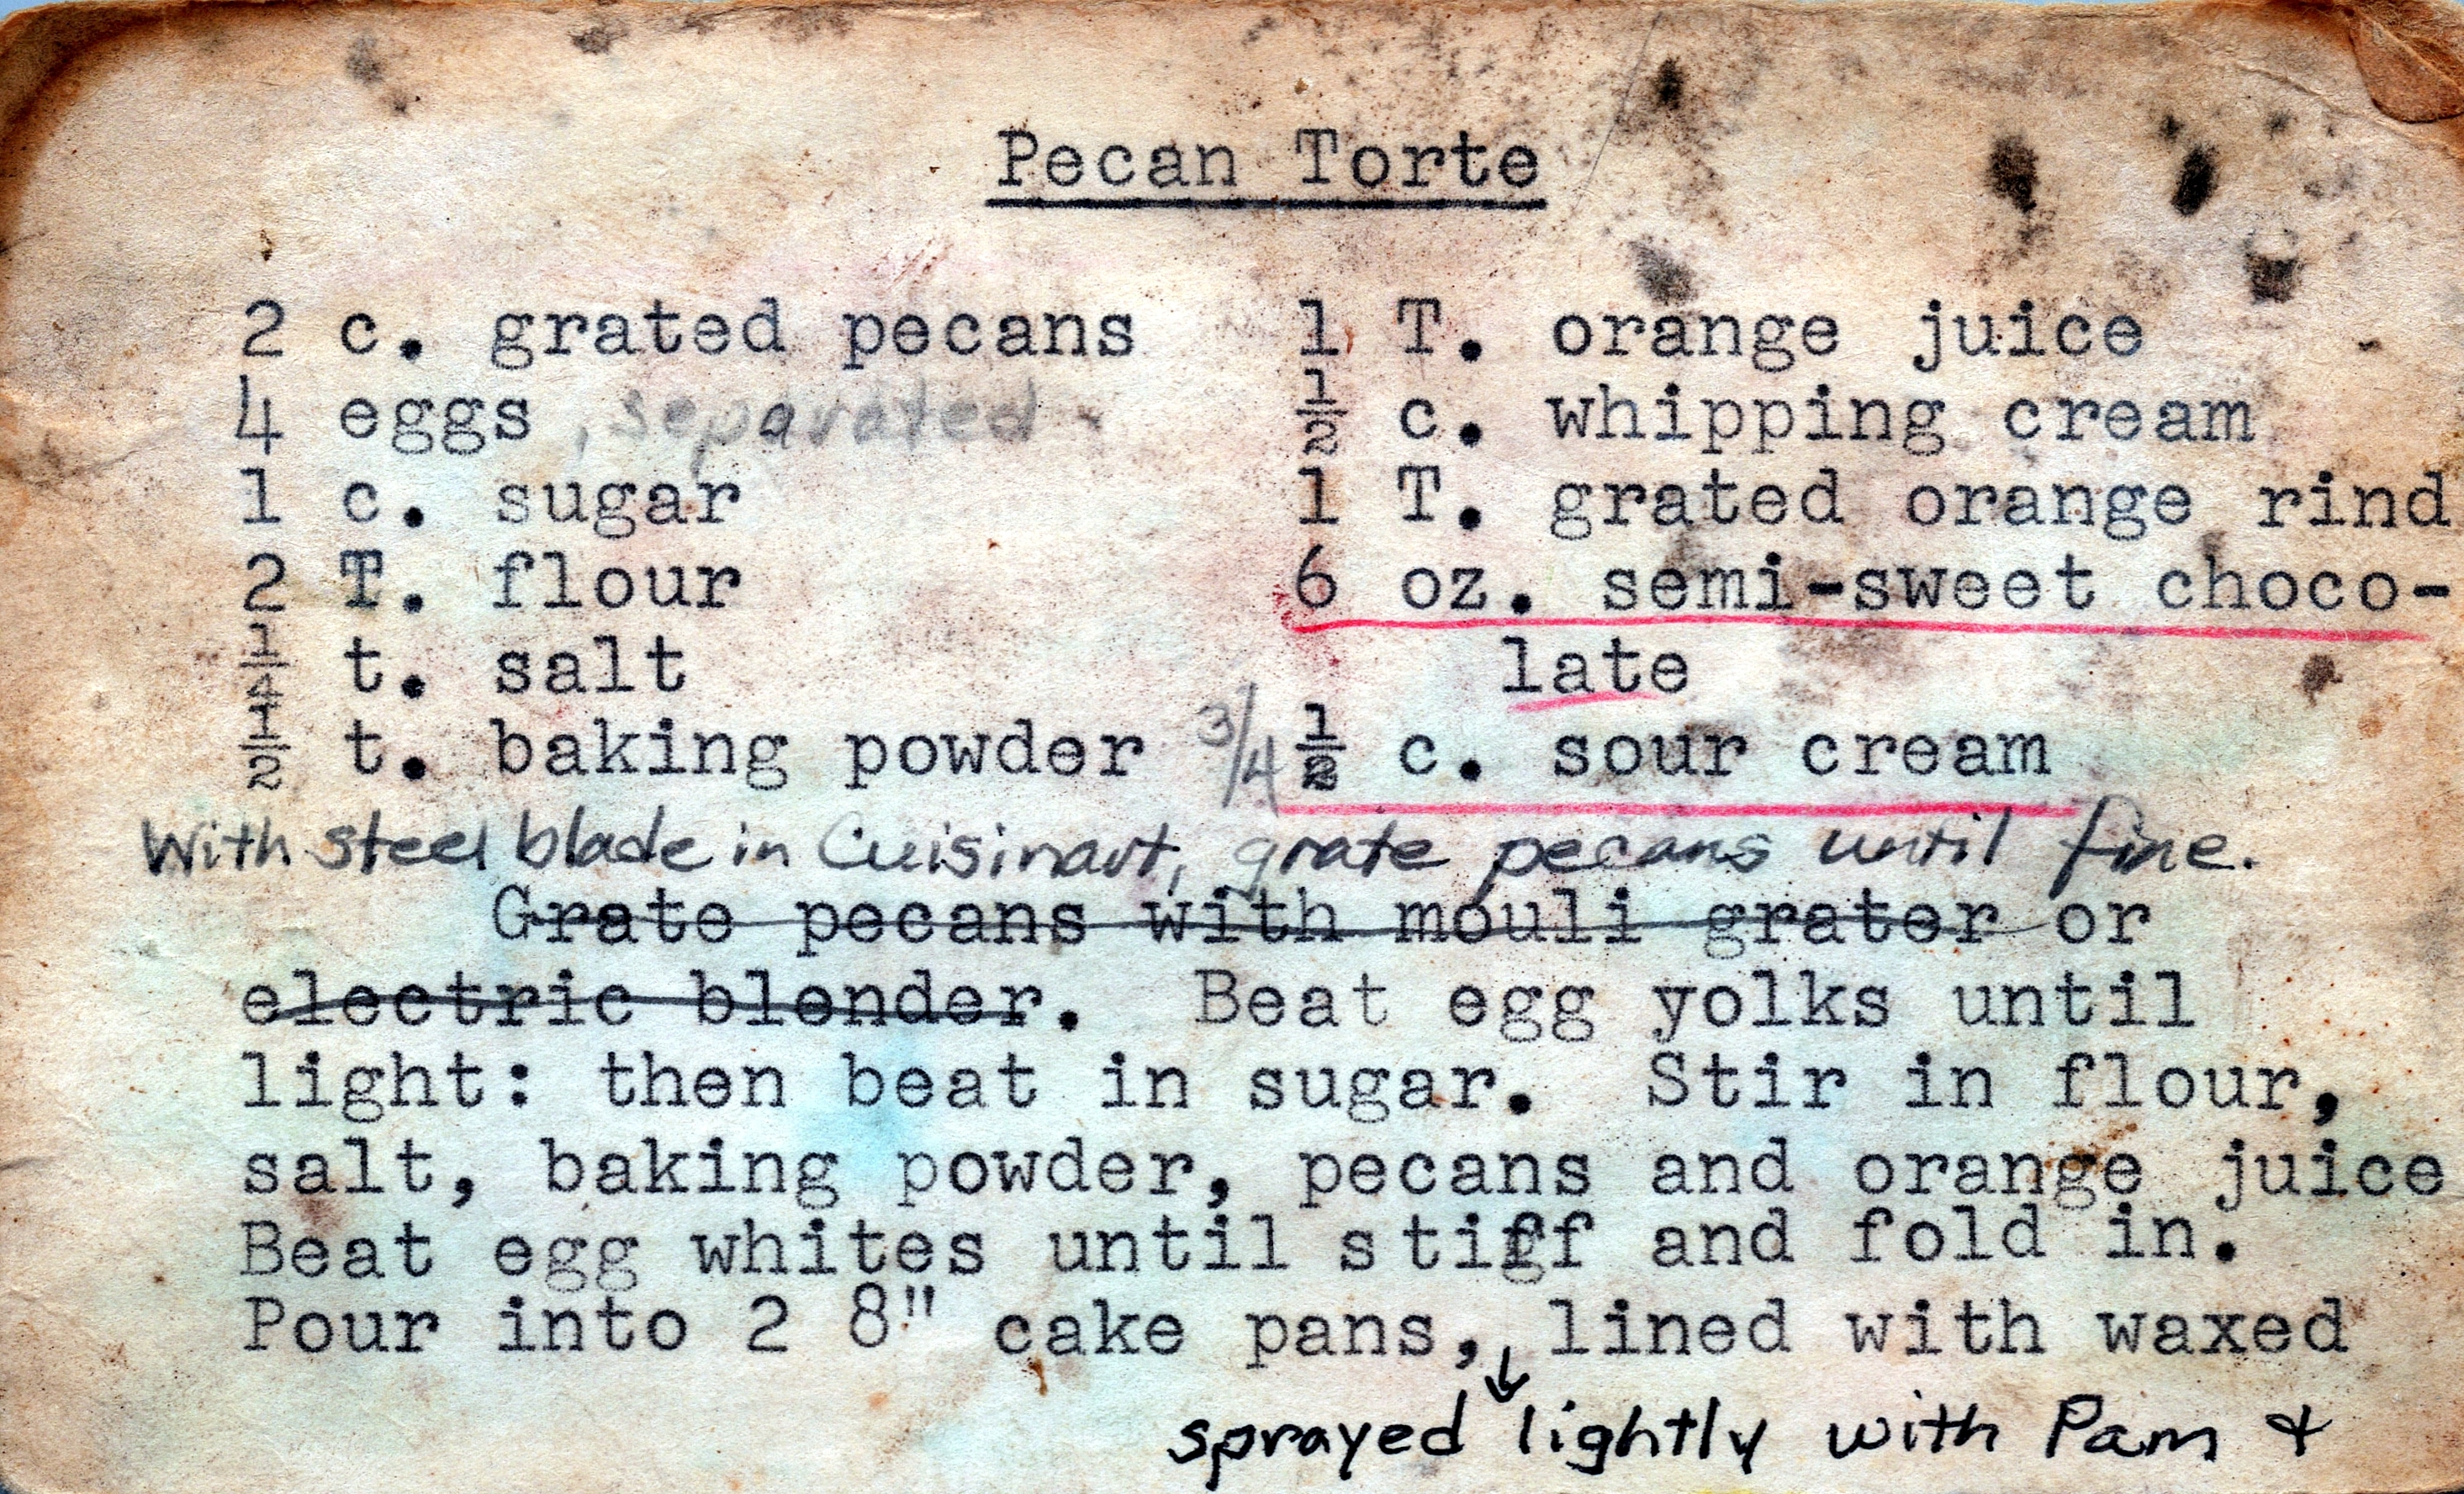 Pecan Torte
2 c. grated pecans
4 eggs , separated
1 c. sugar
2 T. flour
1/4 t. salt
1/2 t. baking powder
1 T. orange juice
1/2 c. whipping cream
1 T. grated orange rind
6 oz. semi-sweet choco-
late
3/4 1/2 c. sour cream
With steel blade in Cuisinart, grate pecans until fine.
Grate pecans with mouli grater or
electric blender. Beat egg yolks until
light: then beat in sugar. Stir in flour,
salt, baking powder, pecans and orange juice
Beat egg whites until stiff and fold in.
Pour into 2 8" cake pans, lined with waxed
↓
sprayed lightly with Pam &